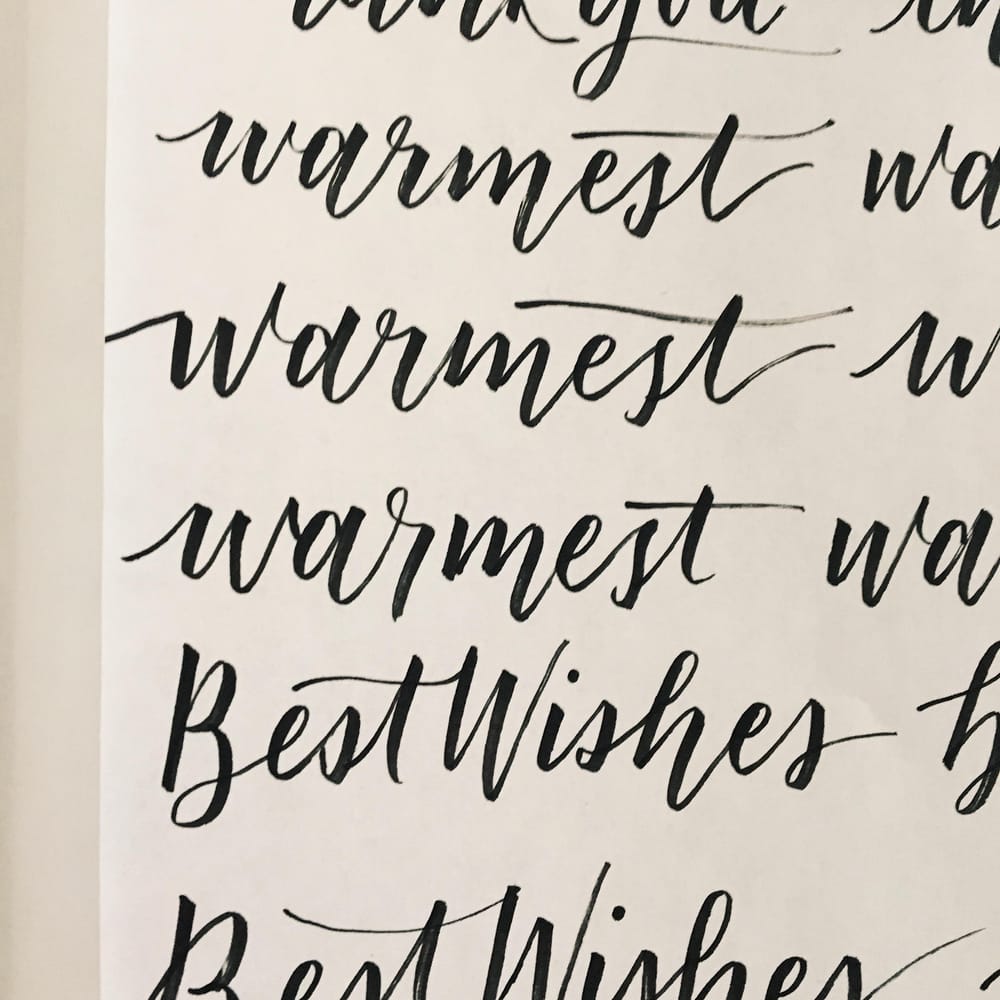 thank you
warmest wa
warmest w
warmest wa
Best Wishes
Best Wishes